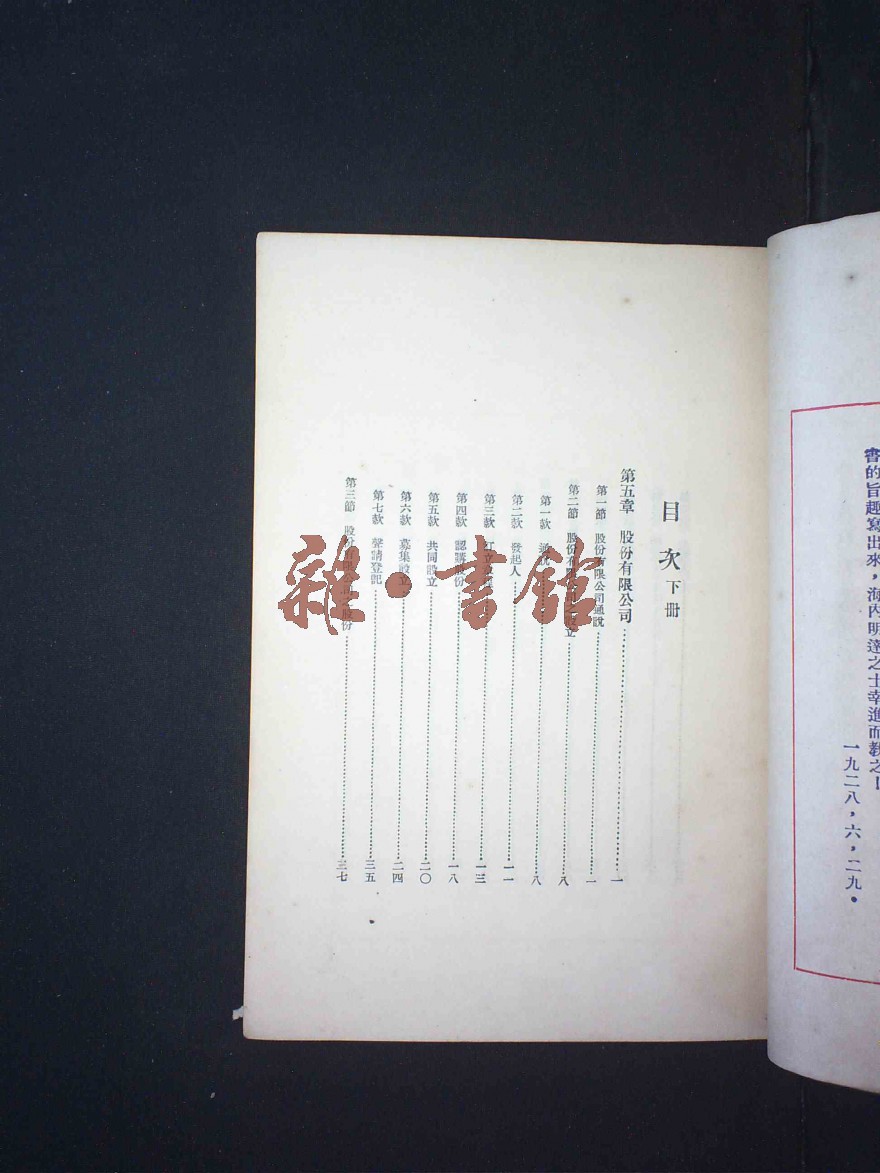 書的旨趣寫出來，海內明達之士幸進而教之！
一九二八，六，二九。
目次 下冊
第五章 股份有限公司 一
第一節 股份有限公司通說 一
第二節 股份有限公司之設立 八
第一款 通說 八
第二款 發起人 一一
第三款 訂立章程 一三
第四款 認購股份 一八
第五款 共同設立 二〇
第六款 募集設立 二四
第七款 聲請登記 三五
第三節 股份有限公司之股份 三七
雜·書館